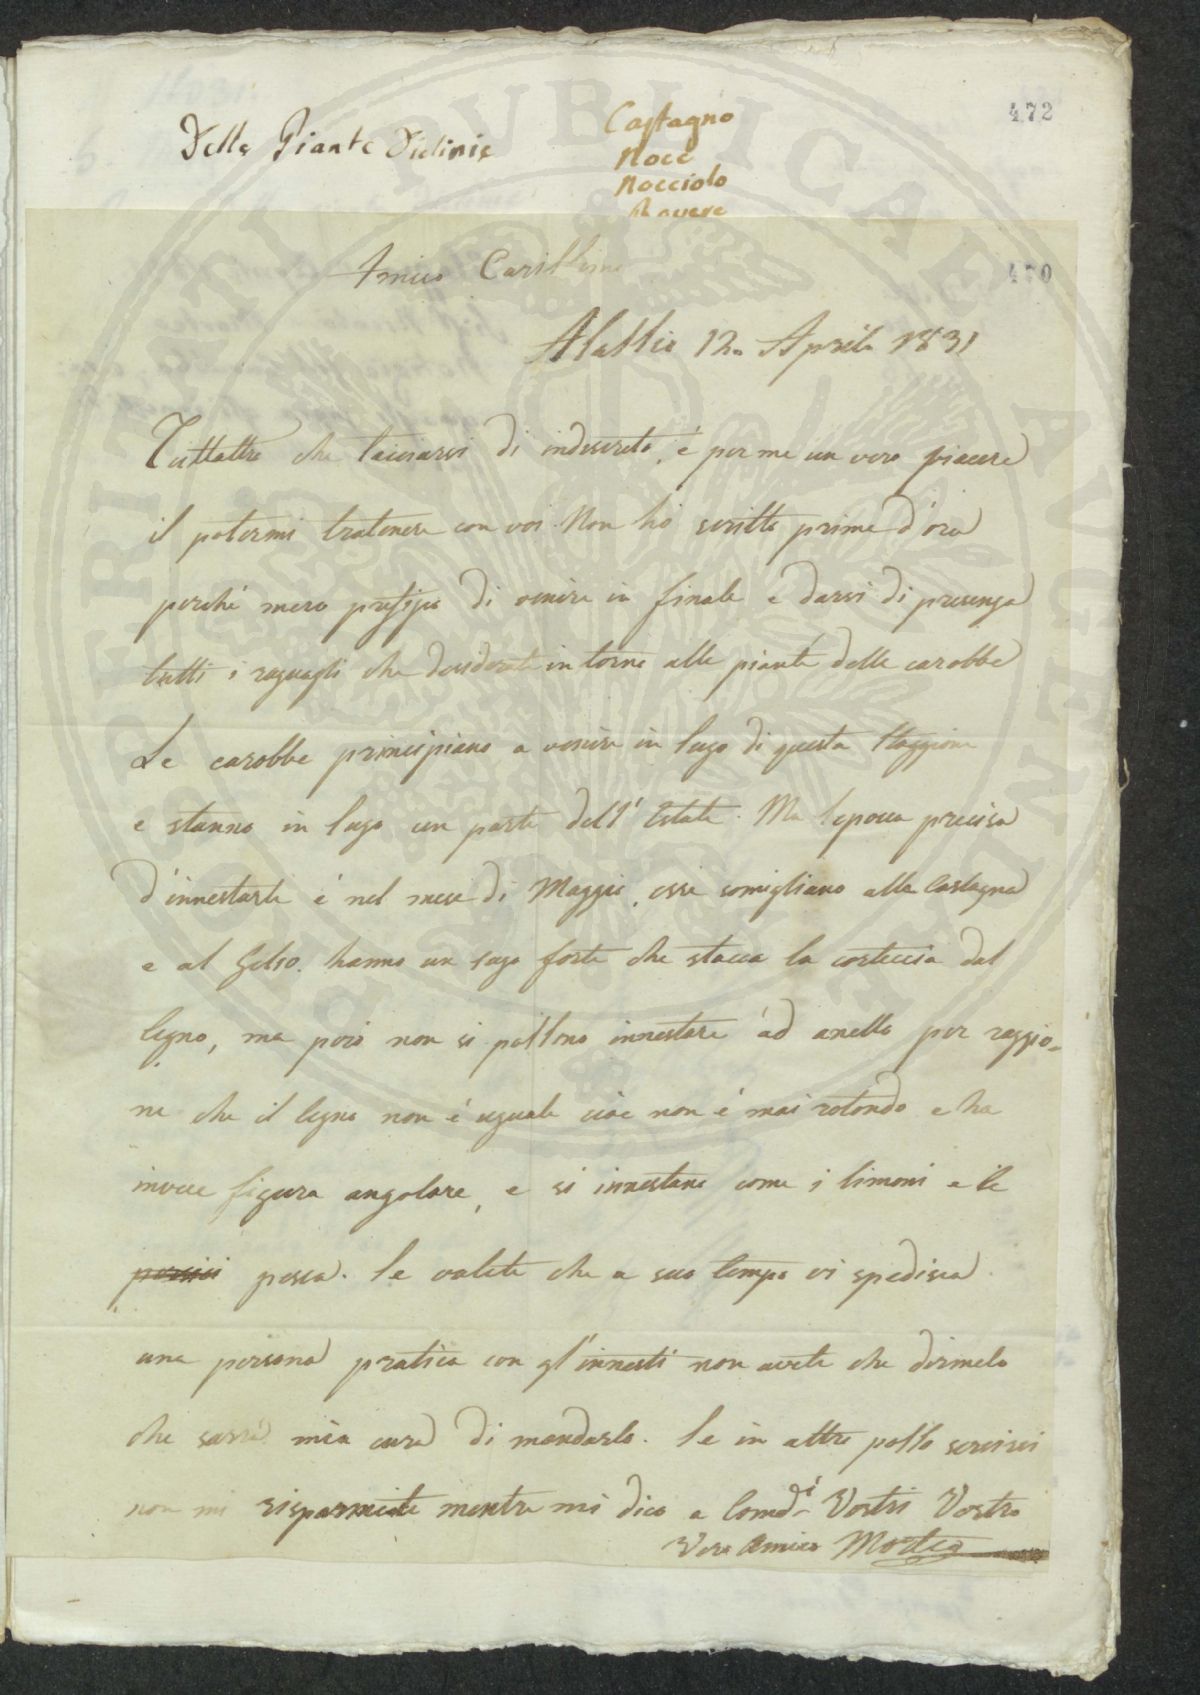 472
Delle Piante
Castagno
Noce
Nocciolo
Rovere
470
Amico Carissimo
Alassio 12. Aprile 1831
Tuttaltro che tacciarvi di indiscreto, è per me un vero piacere
il potermi tratenere con voi. Non hò scritto prima d'ora
perchè mero prefisso di venire in Finale e darvi di presenza
tutti i raguagli che desiderate intorno alle piante delle carobbe
Le carobbe principiano a venire in sugo di questa staggione
e stanno in sugo un parte dell'Estate. Ma lepoca precisa
d'innestarle è nel mese di Maggio, esse somigliano alla Castagna
e al Gelso. hanno un sugo forte che stacca la corteccia dal
legno, ma però non si possono innestare ad anello per raggio-
ne che il legno non è uguale cioè non è mai rotondo e ha
invece figura angolare, e si innestano come i limoni e le
persici pesca. Se volete che a suo tempo vi spedisca
una persona pratica con gl'innesti non avete che dirmelo
che sarrà mia cura di mandarlo. Se in altro posso servirvi
non mi risparmiate mentre mi dico a Comdi Vostri Vostro
Vero Amico